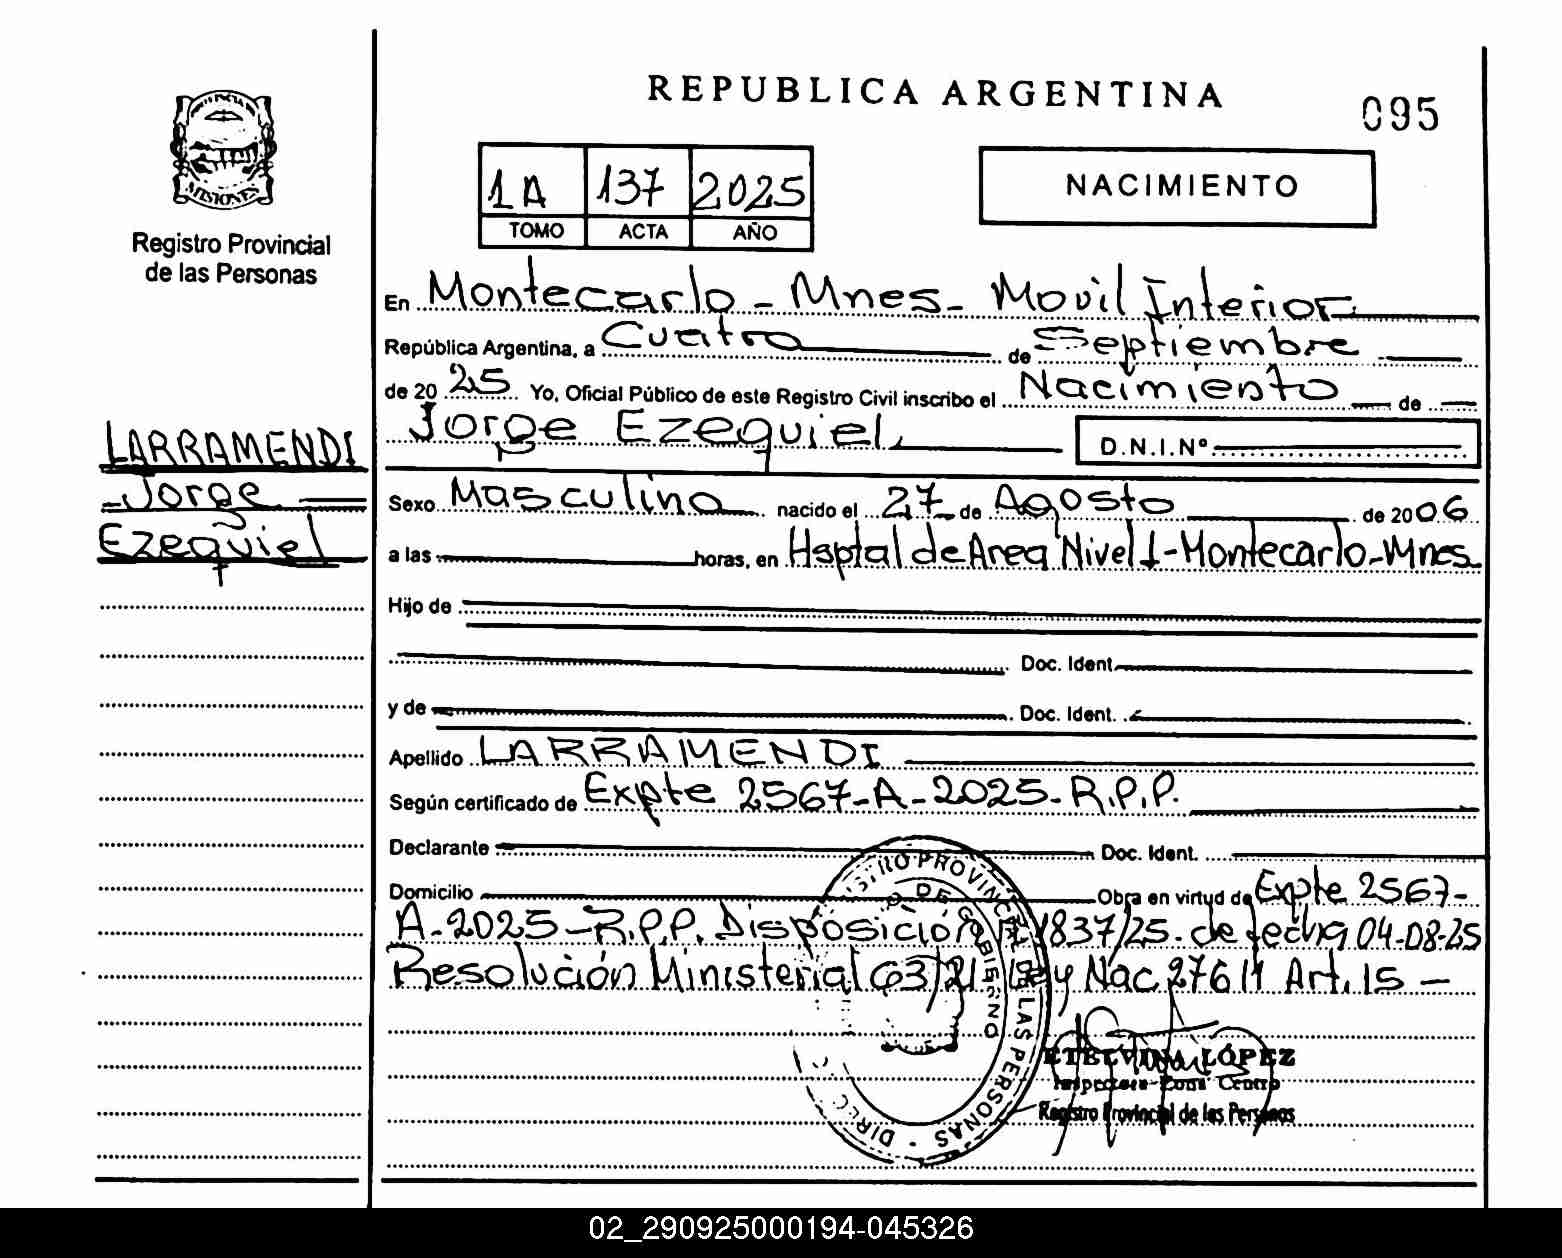 REPUBLICA ARGENTINA
095
MISIONES
Registro Provincial
de las Personas
1A 137 2025
TOMO ACTA AÑO
NACIMIENTO
En Montecarlo - Mnes - Movil Interior
República Argentina, a Cuatro de Septiembre
de 2025 Yo, Oficial Público de este Registro Civil inscribo el Nacimiento de
Jorge Ezequiel D.N.I.Nº
LARRAMENDI
Jorge
Ezequiel
Sexo Masculino nacido el 27 de Agosto de 2006
a las horas, en Hsptal de Area Nivel I - Montecarlo - Mnes.
Hijo de
Doc. Ident.
y de Doc. Ident.
Apellido LARRAMENDI
Según certificado de Expte 2567-A-2025-R.P.P.
Declarante Doc. Ident.
Domicilio Obra en virtud de Expte 2567-
A-2025-R.P.P. Disposición 1837/25. de fecha 04-08-25
Resolución Ministerial 63/21 - Ley Nac 27611 Art. 15 -
PROVINCIAL DE LAS PERSONAS
DE GOBIERNO
ETELVINA LÓPEZ
Inspectora Zona Centro
Registro Provincial de las Personas
02_290925000194-045326